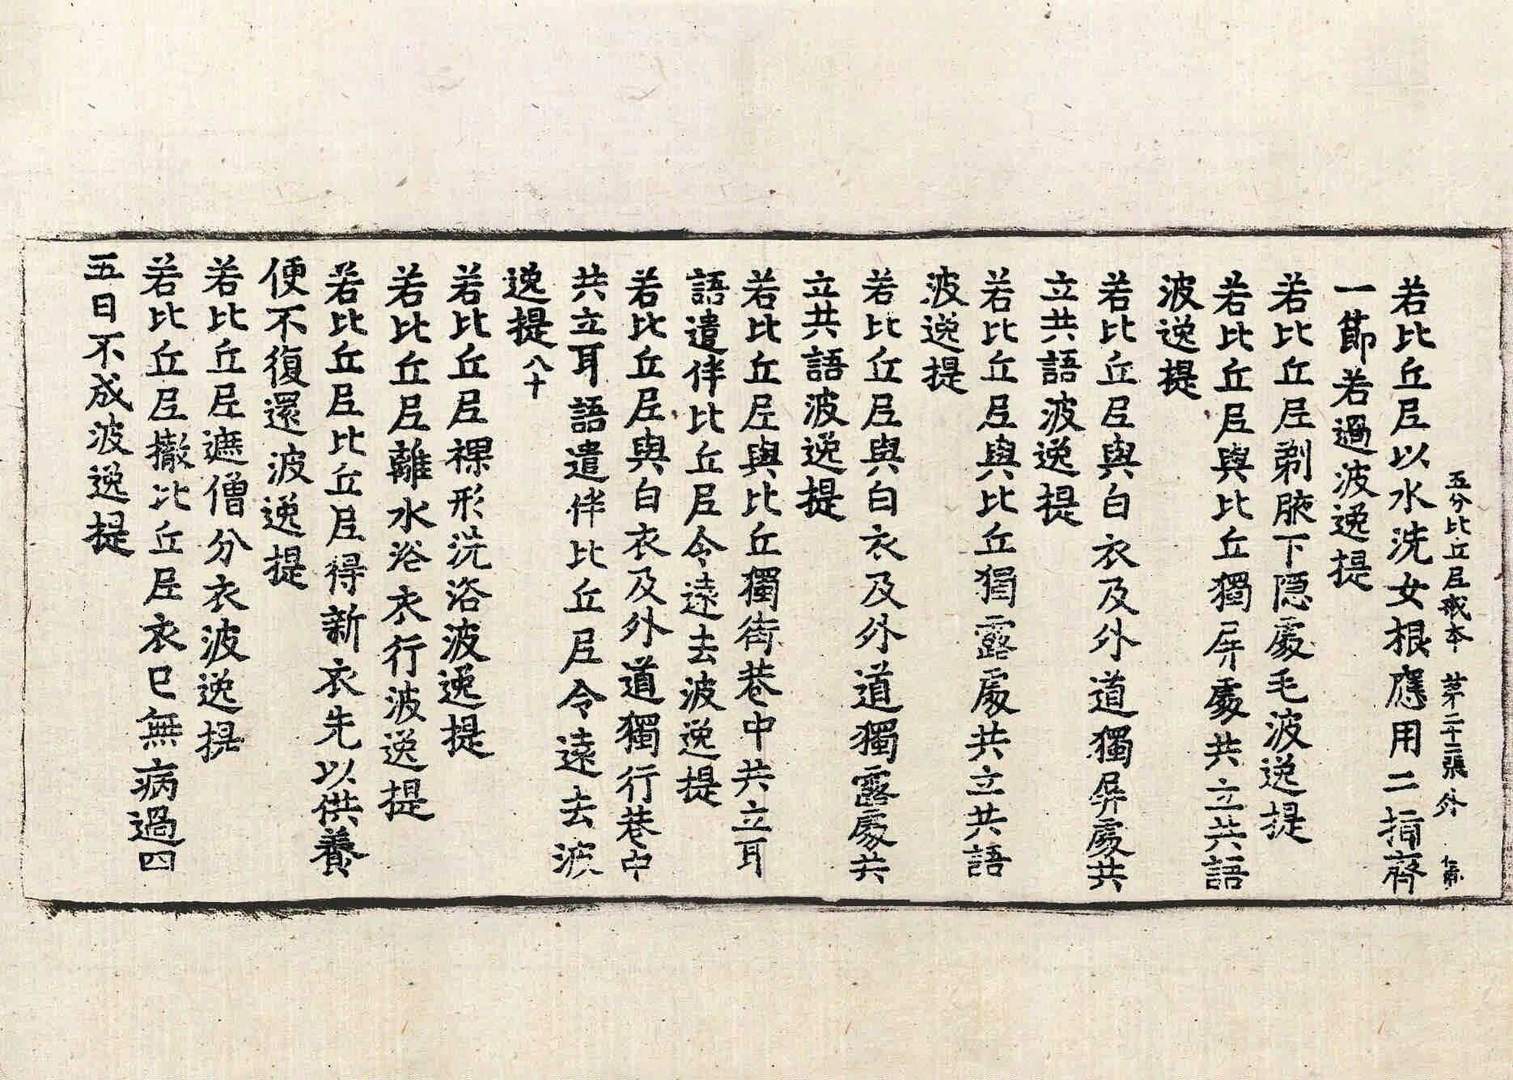 五分比丘尼戒本 苐二十二張 外
若比丘尼以水洗女根應用二指齊
一節若過波逸提
若比丘尼剃腋下隠處毛波逸提
若比丘尼與比丘獨屏處共立共語
波逸提
若比丘尼與白衣及外道獨屏處共
立共語波逸提
若比丘尼與比丘獨露處共立共語
波逸提
若比丘尼與白衣及外道獨露處共
立共語波逸提
若比丘尼與比丘獨街巷中共立耳
語遣伴比丘尼令遠去波逸提
若比丘尼與白衣及外道獨行巷中
共立耳語遣伴比丘尼令遠去波
逸提八十
若比丘尼裸形洗浴波逸提
若比丘尼離水浴衣行波逸提
若比丘尼比丘尼得新衣先以供養
便不復還波逸提
若比丘尼遮僧分衣波逸提
若比丘尼撤比丘尼衣已無病過四
五日不成波逸提